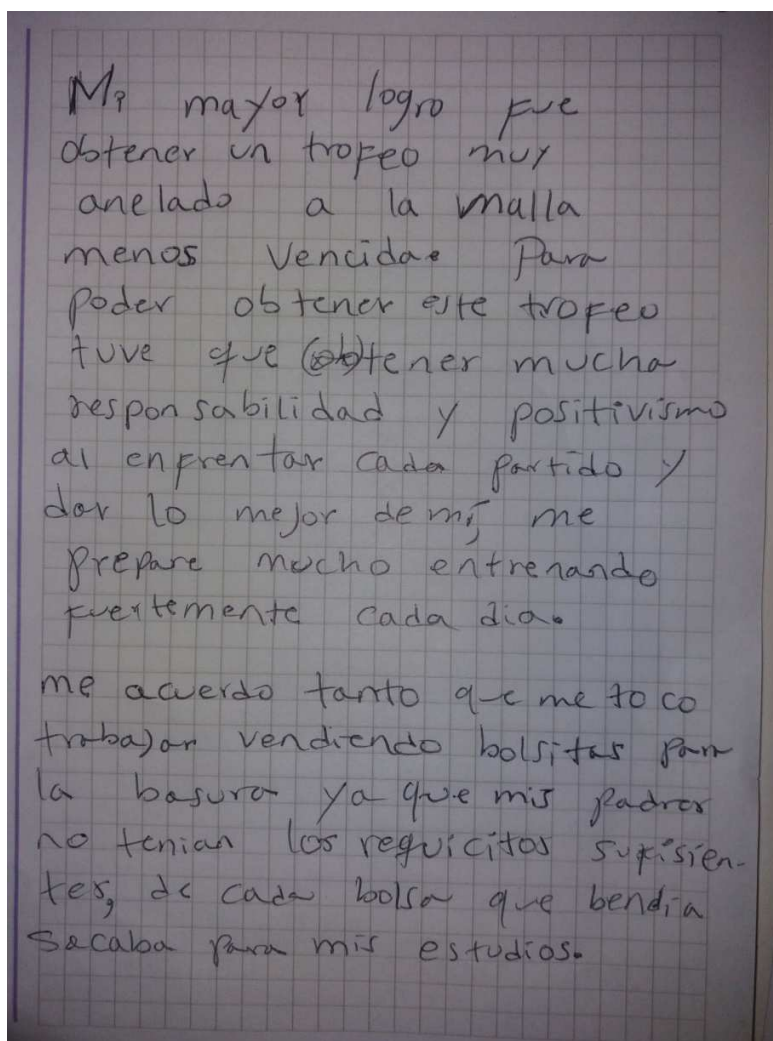 Mi mayor logro fue
obtener un trofeo muy
anelado a la malla
menos vencida. Para
poder obtener este trofeo
tuve que (ob)tener mucha
responsabilidad y positivismo
al enfrentar cada partido y
dar lo mejor de mi, me
prepare mucho entrenando
fuertemente cada dia.
me acuerdo tanto que me to co
trabajar vendiendo bolsitas para
la basura ya que mis padres
no tenian los requicitos sufisien-
tes, de cada bolsa que bendia
sacaba para mis estudios.